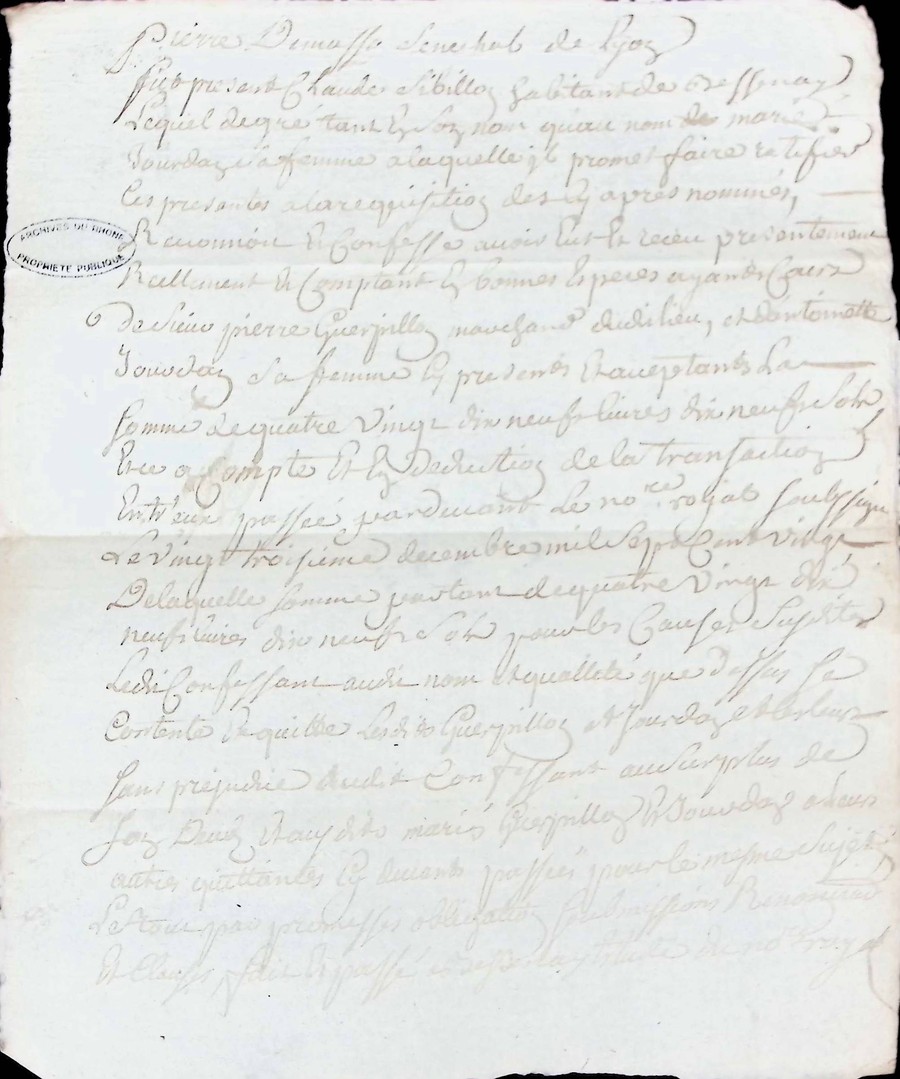 Pierre Demasso Senechal de Lyon
fut present Claude Sibillon habitant de Bessenay
Lequel de gré tant En Son nom qu'au nom de marie
Jourdan Sa femme a laquelle jl promet faire ratifier
Ces presentes a la requisition des Cy apres nommés,
Reconnoit Et Confesse avoir Eut Et receu presentement
Reellement Et Comptant En bonnes Especes ayants Cours
De Sieur pierre Guerpillon marchand dudi lieu, et d'antoinette
Jourdan Sa femme Cy presents Et aceptants La
Somme de quatre Vingt dix neufs livres dix neufs Sols
Et ce a Compte Et En deduction de la transaction
Entr'eux passée pardevant Le nore. roijal Soubssigné
Le Vingt troisieme decembre mil Sept Cent Vingt
De laquelle Somme partant de quatre Vingt dix
neufs livres dix neufs Sols pour les Causes Susdites
Ledit Confessant audit nom et quallité que dessus Se
Contente Et quitte Lesdits Guerpillon et Jourdan et les leurs
Sans prejudice dudit Confessant au Surplus de
Son Deub Et ausdits mariés Guerpillon Et Jourdan a leurs
autres quittances Cy devant passées pour le mesme Sujet,
Le tout par promesses obligation Submissions Renonciations
Et Clauses, fait Et passé Estude du nore. Royal
ARCHIVES DU RHONE
PROPRIETE PUBLIQUE